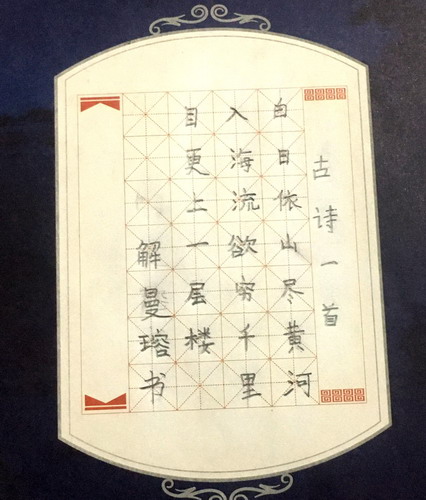 古诗一首
白日依山尽黄河
入海流欲穷千里
目更上一层楼
解曼瑢书